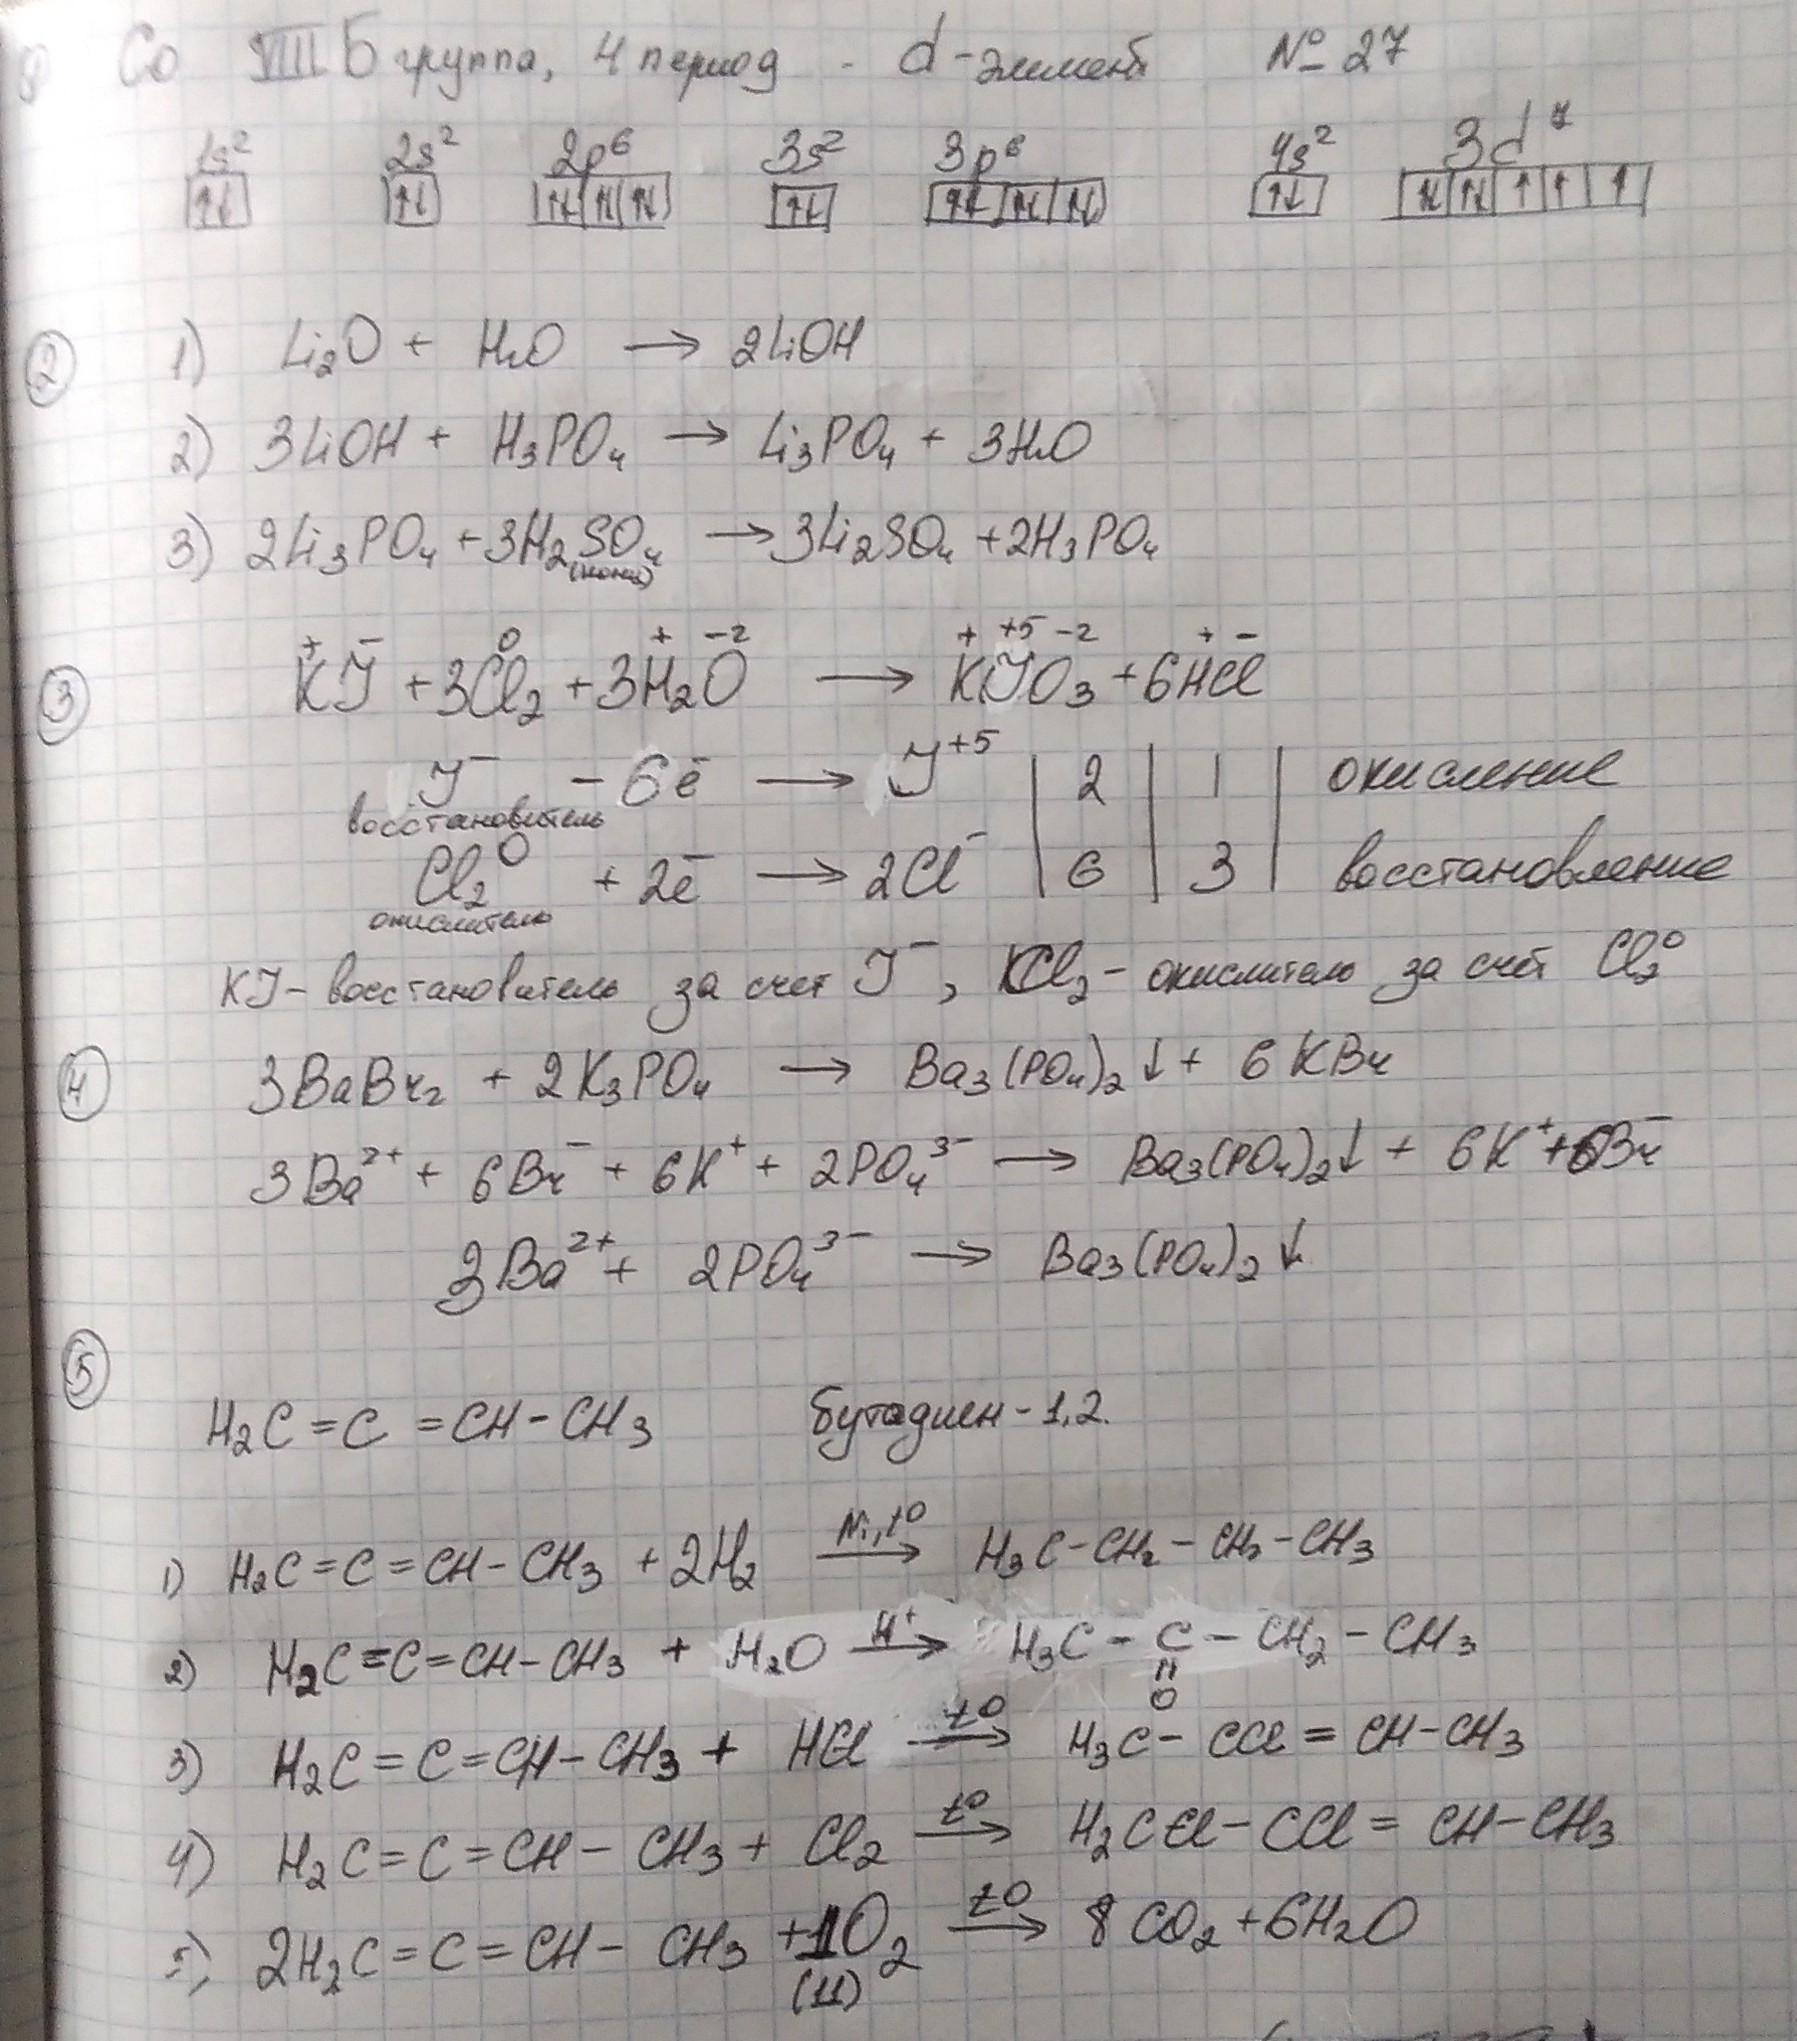 Co VIII Б группа, 4 период - d-элемент № 27
1s² 2s² 2p⁶ 3s² 3p⁶ 4s² 3d⁷
↑↓ ↑↓ ↑↓ ↑↓ ↑↓ ↑↓ ↑↓ ↑↓ ↑↓ ↑↓ ↑↓ ↑↓ ↑ ↑ ↑
② 1) Li₂O + H₂O → 2LiOH
2) 3LiOH + H₃PO₄ → Li₃PO₄ + 3H₂O
3) 2Li₃PO₄ + 3H₂SO₄ → 3Li₂SO₄ + 2H₃PO₄
(конц)
+ − 0 + −2 + +5 −2 + −
③ KJ + 3Cl₂ + 3H₂O → KJO₃ + 6HCl
J⁻ − 6ē → J⁺⁵ | 2 | 1 | окисление
восстановитель
Cl₂⁰ + 2ē → 2Cl⁻ | 6 | 3 | восстановление
окислитель
KJ - восстановитель за счет J⁻, Cl₂ - окислитель за счёт Cl₂⁰
④ 3BaBr₂ + 2K₃PO₄ → Ba₃(PO₄)₂↓ + 6KBr
3Ba²⁺ + 6Br⁻ + 6K⁺ + 2PO₄³⁻ → Ba₃(PO₄)₂↓ + 6K⁺ + 6Br⁻
3Ba²⁺ + 2PO₄³⁻ → Ba₃(PO₄)₂↓
⑤
H₂C = C = CH - CH₃ бутадиен - 1,2.
Ni, t°
1) H₂C = C = CH - CH₃ + 2H₂ → H₃C - CH₂ - CH₂ - CH₃
H⁺
2) H₂C = C = CH - CH₃ + H₂O → H₃C - C - CH₂ - CH₃
=
O
t°
3) H₂C = C = CH - CH₃ + HCl → H₃C - CCl = CH - CH₃
t°
4) H₂C = C = CH - CH₃ + Cl₂ → H₂CCl - CCl = CH - CH₃
t°
5) 2H₂C = C = CH - CH₃ + 11O₂ → 8CO₂ + 6H₂O
(11)